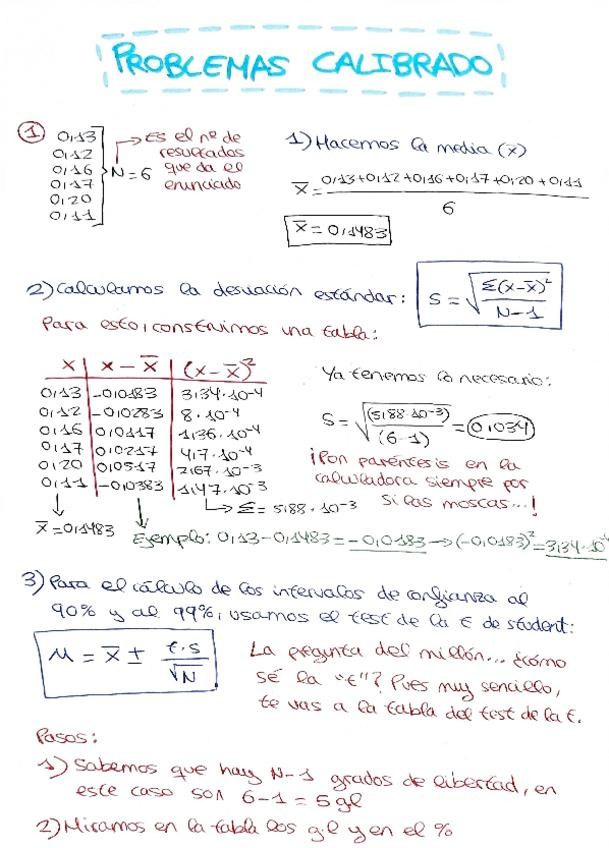 PROBLEMAS CALIBRADO
① 0,13
0,12
0,16
0,17
0,20
0,11
N=6
→ Es el nº de
resultados
que da el
enunciado
1) Hacemos la media (x̄)
x̄ = (0,13+0,12+0,16+0,17+0,20+0,11) / 6
x̄ = 0,1483
2) Calculamos la desviación estándar: S = √(Σ(x-x̄)² / N-1)
Para esto, construimos una tabla:
x | x - x̄ | (x - x̄)²
0,13 | -0,0183 | 3,34·10⁻⁴
0,12 | -0,0283 | 8·10⁻⁴
0,16 | 0,0117 | 1,36·10⁻⁴
0,17 | 0,0217 | 4,7·10⁻⁴
0,20 | 0,0517 | 2,67·10⁻³
0,11 | -0,0383 | 1,47·10⁻³
x̄ = 0,1483
→ Σ = 5,88·10⁻³
Ya tenemos lo necesario:
S = √((5,88·10⁻³) / (6-1)) = 0,034
¡Pon paréntesis en la
calculadora siempre por
si las moscas...!
Ejemplo: 0,13-0,1483 = -0,0183 → (-0,0183)² = 3,34·10⁻⁴
3) Para el cálculo de los intervalos de confianza al
90% y al 99%, usamos el test de la t de student:
μ = x̄ ± t·s / √N
La pregunta del millón... ¿cómo
sé la "t"? Pues muy sencillo,
te vas a la tabla del test de la t.
Pasos:
1) Sabemos que hay N-1 grados de libertad, en
este caso son 6-1 = 5 gl
2) Miramos en la tabla los gl y en el %